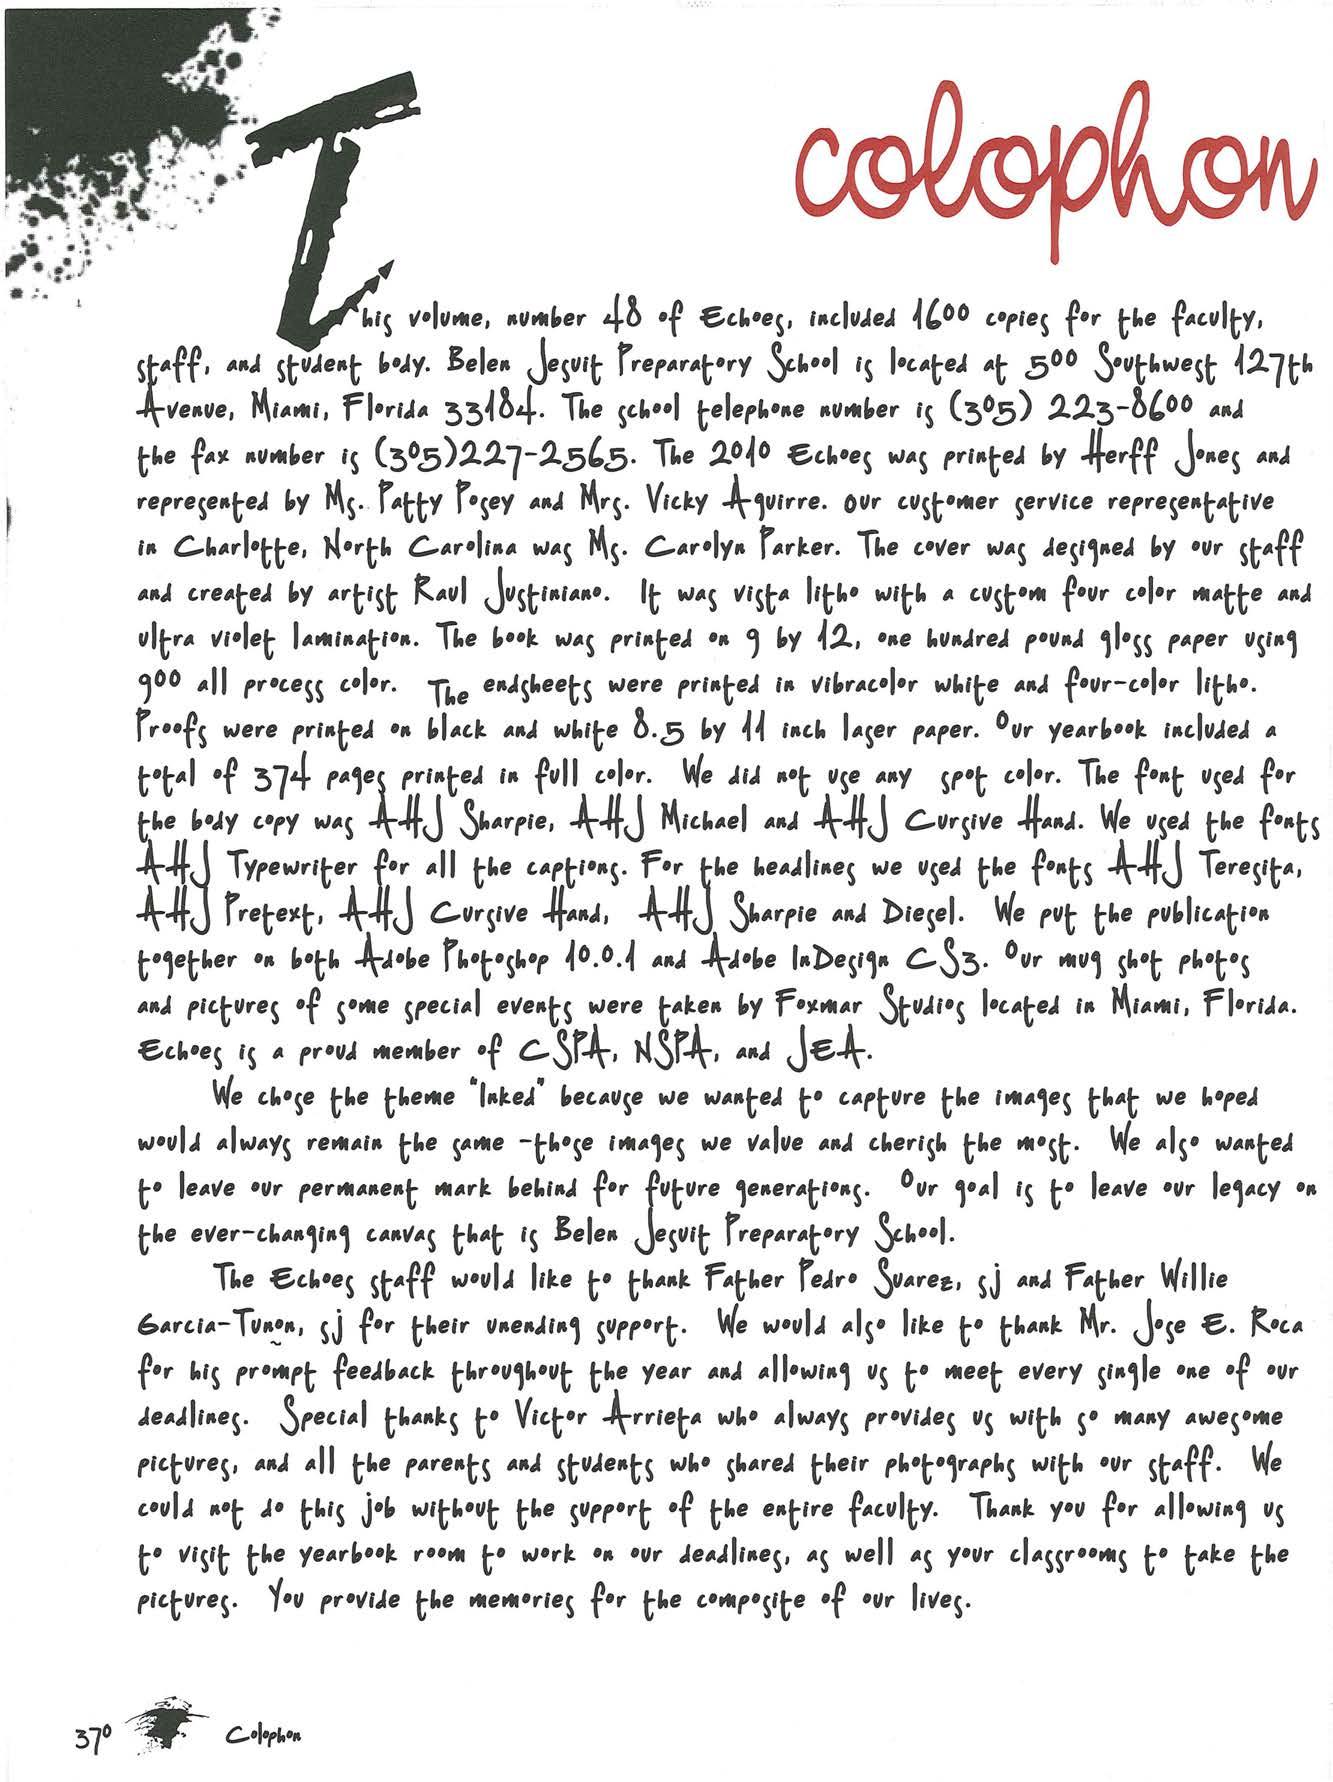 colophon
This volume, number 48 of Echoes, included 1600 copies for the faculty,
staff, and student body. Belen Jesuit Preparatory School is located at 500 Southwest 127th
Avenue, Miami, Florida 33184. The school telephone number is (305) 223-8600 and
the fax number is (305)227-2565. The 2010 Echoes was printed by Herff Jones and
represented by Ms. Patty Posey and Mrs. Vicky Aguirre. Our customer service representative
in Charlotte, North Carolina was Ms. Carolyn Parker. The cover was designed by our staff
and created by artist Raul Justiniano. It was vista litho with a custom four color matte and
ultra violet lamination. The book was printed on 9 by 12, one hundred pound gloss paper using
900 all process color. The endsheets were printed in vibracolor white and four-color litho.
Proofs were printed on black and white 8.5 by 11 inch laser paper. Our yearbook included a
total of 374 pages printed in full color. We did not use any spot color. The font used for
the body copy was AHJ Sharpie, AHJ Michael and AHJ Cursive Hand. We used the fonts
AHJ Typewriter for all the captions. For the headlines we used the fonts AHJ Teresita,
AHJ Pretext, AHJ Cursive Hand, AHJ Sharpie and Diesel. We put the publication
together on both Adobe Photoshop 10.0.1 and Adobe InDesign CS3. Our mug shot photos
and pictures of some special events were taken by Foxmar Studios located in Miami, Florida.
Echoes is a proud member of CSPA, NSPA, and JEA.
We chose the theme "Inked" because we wanted to capture the images that we hoped
would always remain the same -those images we value and cherish the most. We also wanted
to leave our permanent mark behind for future generations. Our goal is to leave our legacy on
the ever-changing canvas that is Belen Jesuit Preparatory School.
The Echoes staff would like to thank Father Pedro Suarez, sj and Father Willie
Garcia-Tunon, sj for their unending support. We would also like to thank Mr. Jose E. Roca
for his prompt feedback throughout the year and allowing us to meet every single one of our
deadlines. Special thanks to Victor Arrieta who always provides us with so many awesome
pictures, and all the parents and students who shared their photographs with our staff. We
could not do this job without the support of the entire faculty. Thank you for allowing us
to visit the yearbook room to work on our deadlines, as well as your classrooms to take the
pictures. You provide the memories for the composite of our lives.
370 Colophon